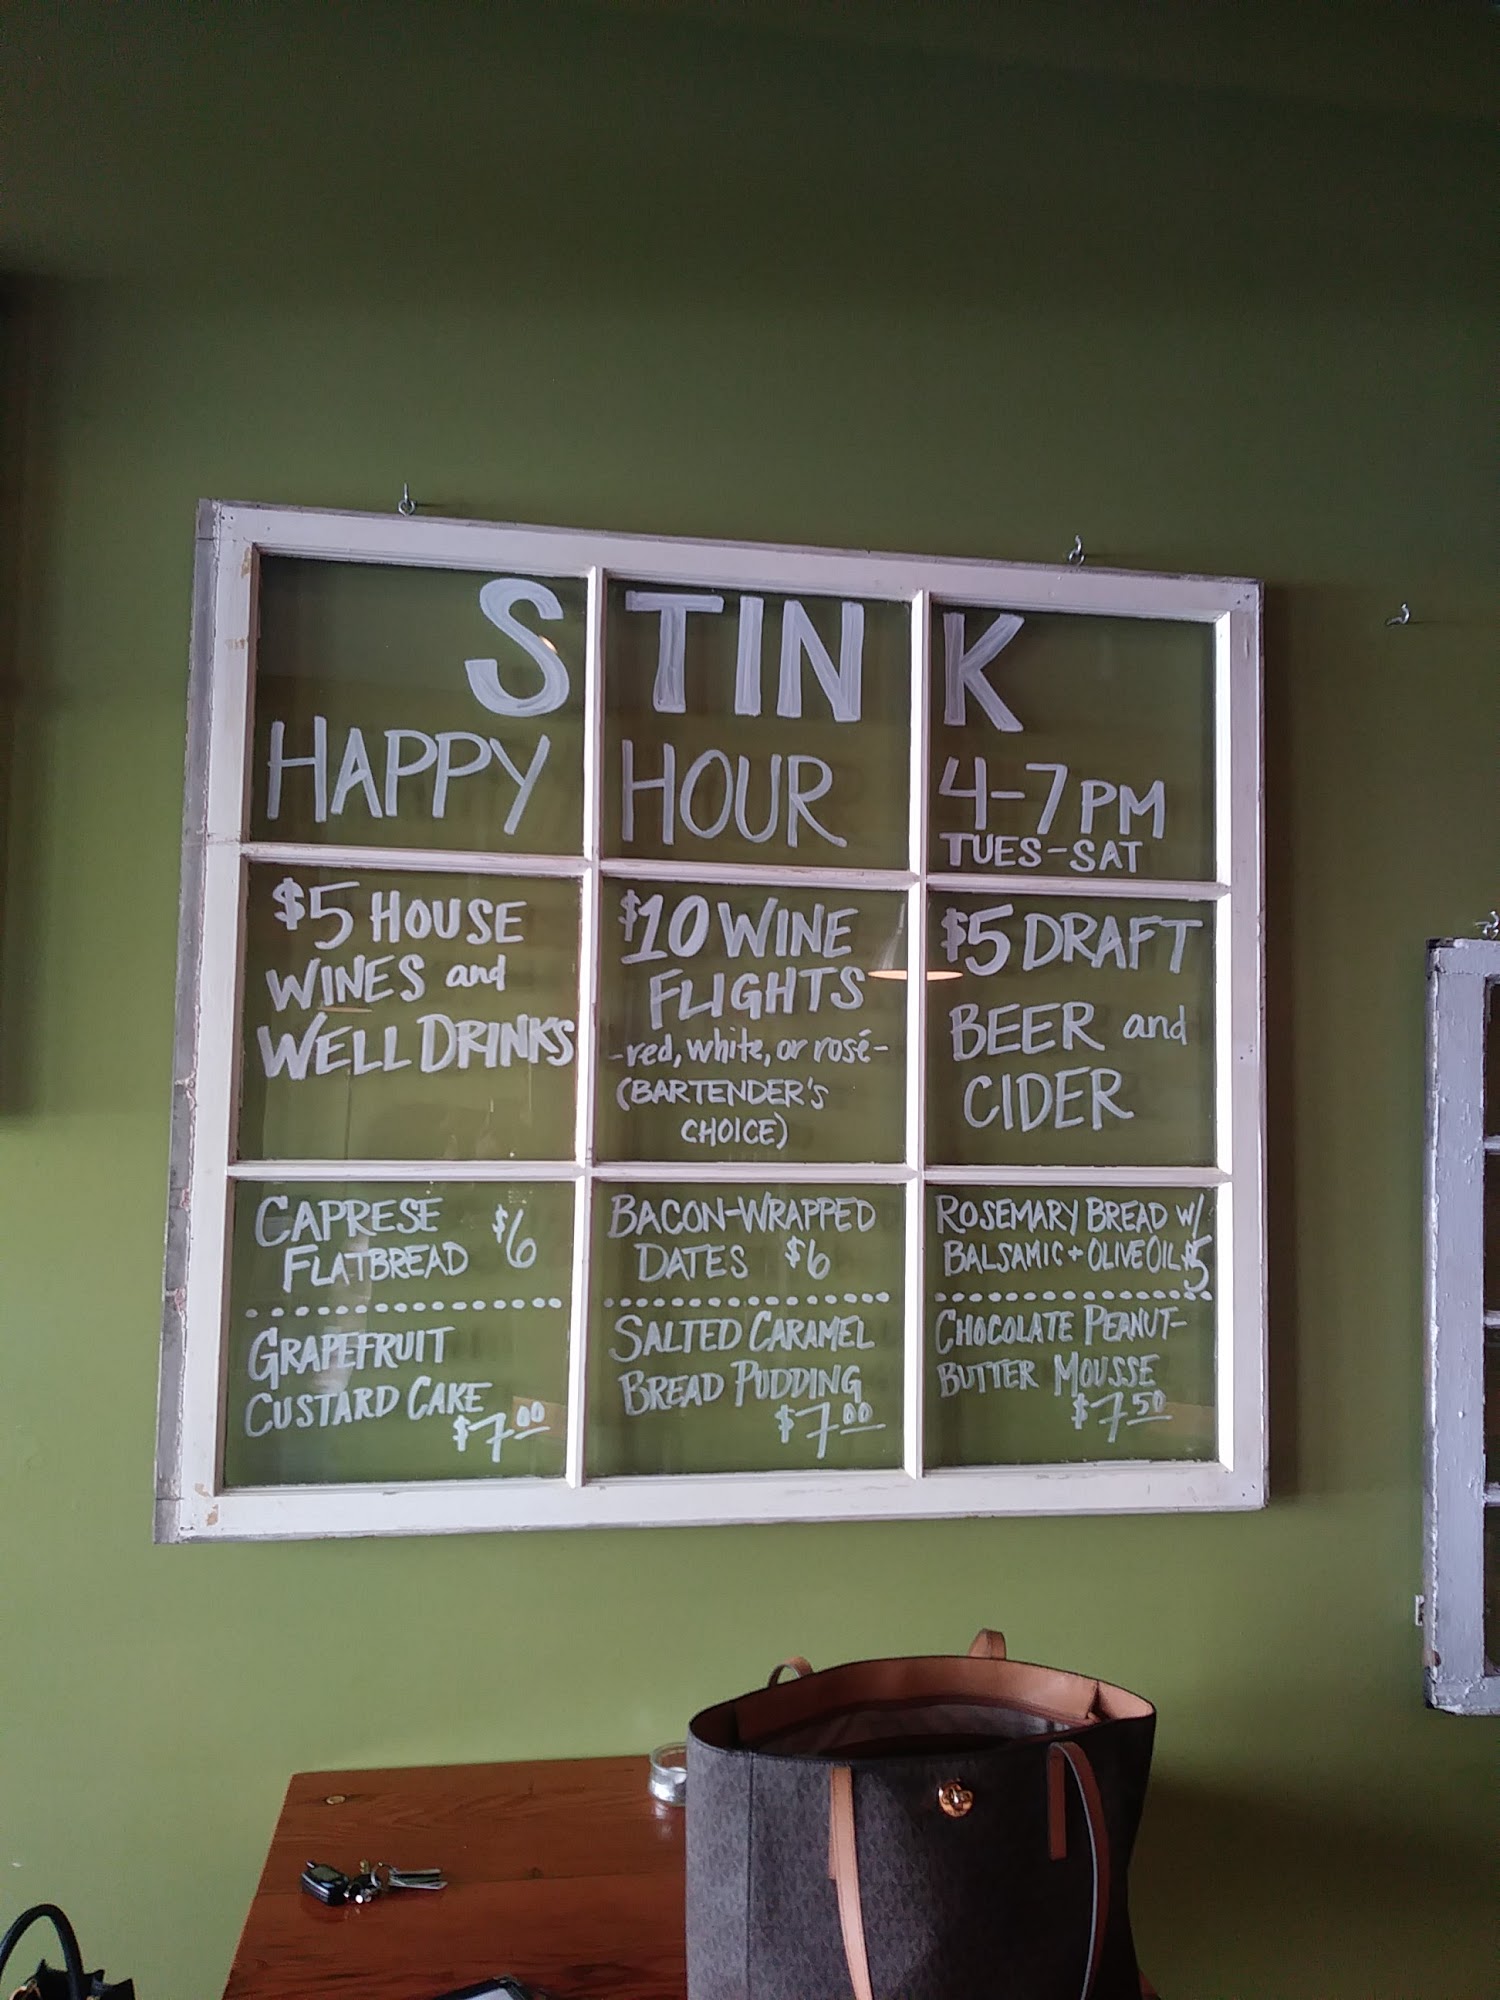 STINK
HAPPY HOUR 4-7PM
TUES-SAT
$5 HOUSE
WINES and
WELL DRINKS
$10 WINE
FLIGHTS
-red, white, or rosé-
(BARTENDER'S
CHOICE)
$5 DRAFT
BEER and
CIDER
CAPRESE
FLATBREAD $6
GRAPEFRUIT
CUSTARD CAKE
$7.00
BACON-WRAPPED
DATES $6
SALTED CARAMEL
BREAD PUDDING
$7.00
ROSEMARY BREAD W/
BALSAMIC + OLIVE OIL $5
CHOCOLATE PEANUT-
BUTTER MOUSSE
$7.50